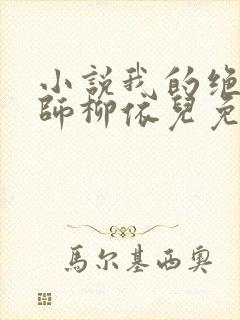 小說我的绝
師柳依兒免
馬尔基西奥